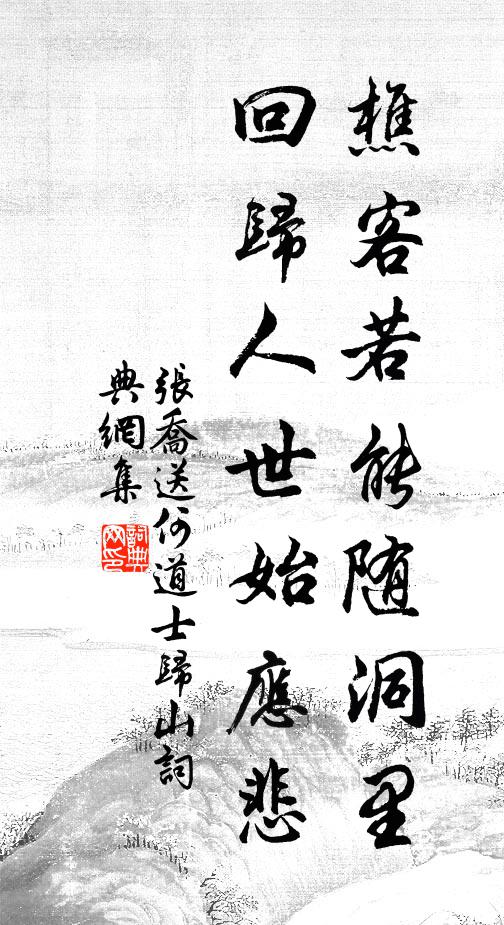 樵客若能随洞里
回歸人世始應悲
張喬送何道士歸山詞
典網集
詞典
网印